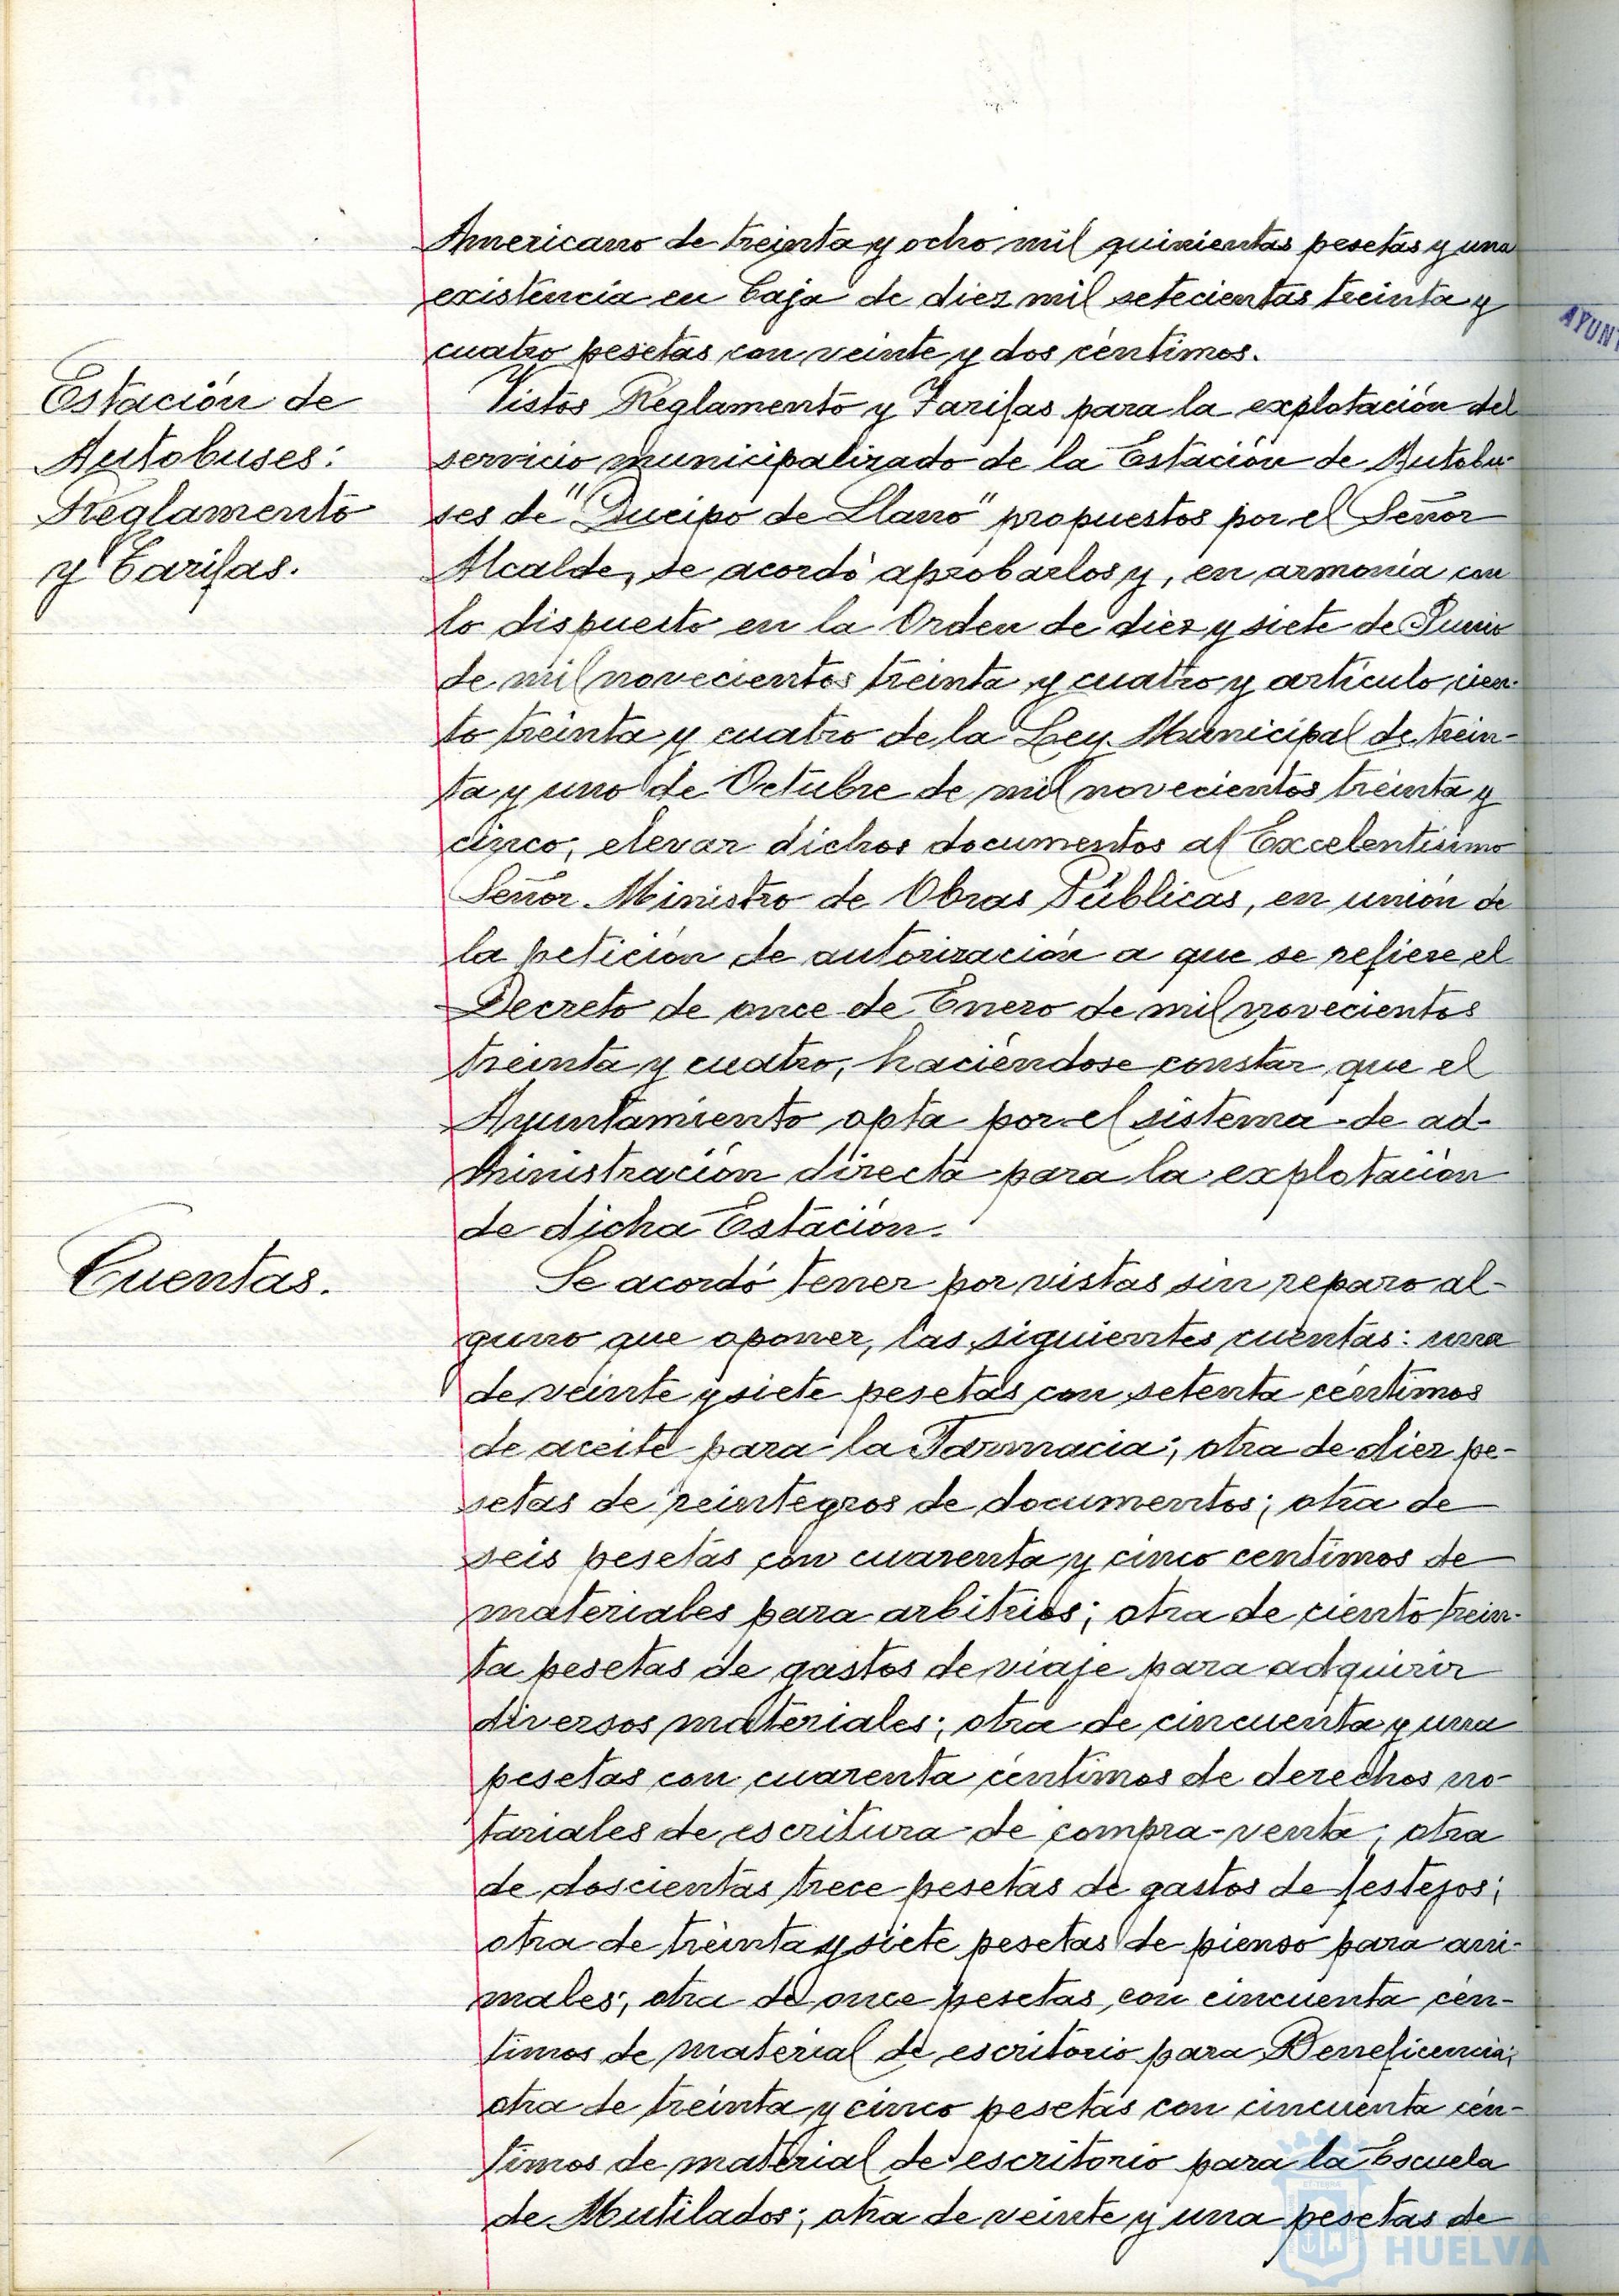 Americano de treinta y ocho mil quinientas pesetas y una
existencia en Caja de diez mil setecientas treinta y
cuatro pesetas con veinte y dos céntimos.
Estación de
Autobuses:
Reglamento
y Tarifas.
Vistos Reglamento y Tarifas para la explotación del
servicio municipalizado de la Estación de Autobu-
ses de "Queipo de Llano" propuestos por el Señor
Alcalde, se acordó aprobarlos y, en armonía con
lo dispuesto en la Orden de diez y siete de Junio
de mil novecientos treinta y cuatro y artículo cien-
to treinta y cuatro de la Ley Municipal de trein-
ta y uno de Octubre de mil novecientos treinta y
cinco, elevar dichos documentos al Excelentísimo
Señor Ministro de Obras Públicas, en unión de
la petición de autorización a que se refiere el
Decreto de once de Enero de mil novecientos
treinta y cuatro, haciéndose constar que el
Ayuntamiento opta por el sistema de ad-
ministración directa para la explotación
de dicha Estación.
Cuentas.
Se acordó tener por vistas sin reparo al-
guno que oponer, las siguientes cuentas: una
de veinte y siete pesetas con setenta céntimos
de aceite para la Farmacia; otra de diez pe-
setas de reintegros de documentos; otra de
seis pesetas con cuarenta y cinco centimos de
materiales para arbitrios; otra de ciento trein-
ta pesetas de gastos de viaje para adquirir
diversos materiales; otra de cincuenta y una
pesetas con cuarenta céntimos de derechos no-
tariales de escritura de compra-venta; otra
de doscientas trece pesetas de gastos de festejos;
otra de treinta y siete pesetas de pienso para ani-
males; otra de once pesetas con cincuenta cén-
timos de material de escritorio para Beneficencia;
otra de treinta y cinco pesetas con cincuenta cén-
timos de material de escritorio para la Escuela
de Mutilados; otra de veinte y una pesetas de
AYUNT
HUELVA